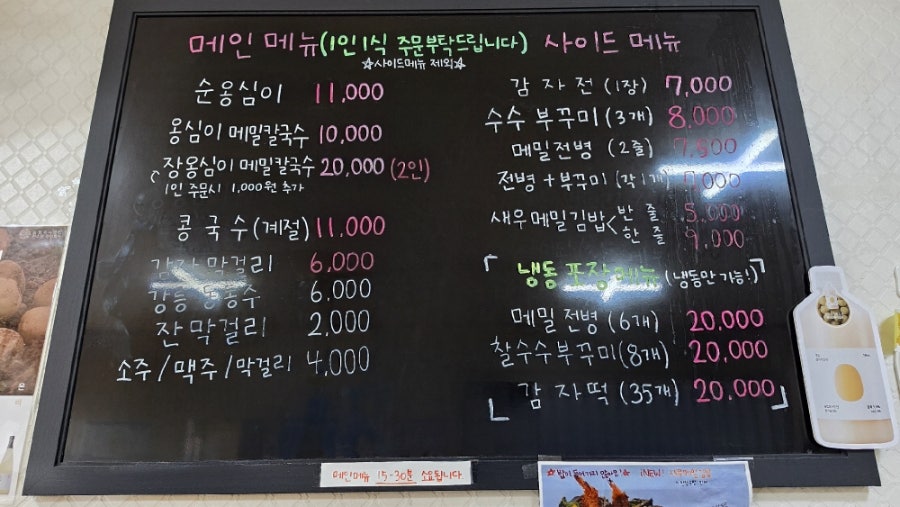 메인 메뉴(1인 1식 주문부탁드립니다)
☆사이드메뉴 제외☆
순옹심이 11,000
옹심이 메밀칼국수 10,000
장옹심이 메밀칼국수 20,000 (2인)
1인 주문시 1,000원 추가
콩국수(계절) 11,000
감자 막걸리 6,000
강릉 동동주 6,000
잔 막걸리 2,000
소주/맥주/막걸리 4,000
사이드 메뉴
감자전 (1장) 7,000
수수 부꾸미 (3개) 8,000
메밀전병 (2줄)
전병+부꾸미 (각1개)
새우메밀김밥 < 반 줄 5,000
한 줄 9,000
냉동 포장메뉴 (냉동만 가능!)
메밀 전병 (6개) 20,000
찰수수부꾸미(8개) 20,000
감자떡 (35개) 20,000
메인메뉴 15-30분 소요됩니다